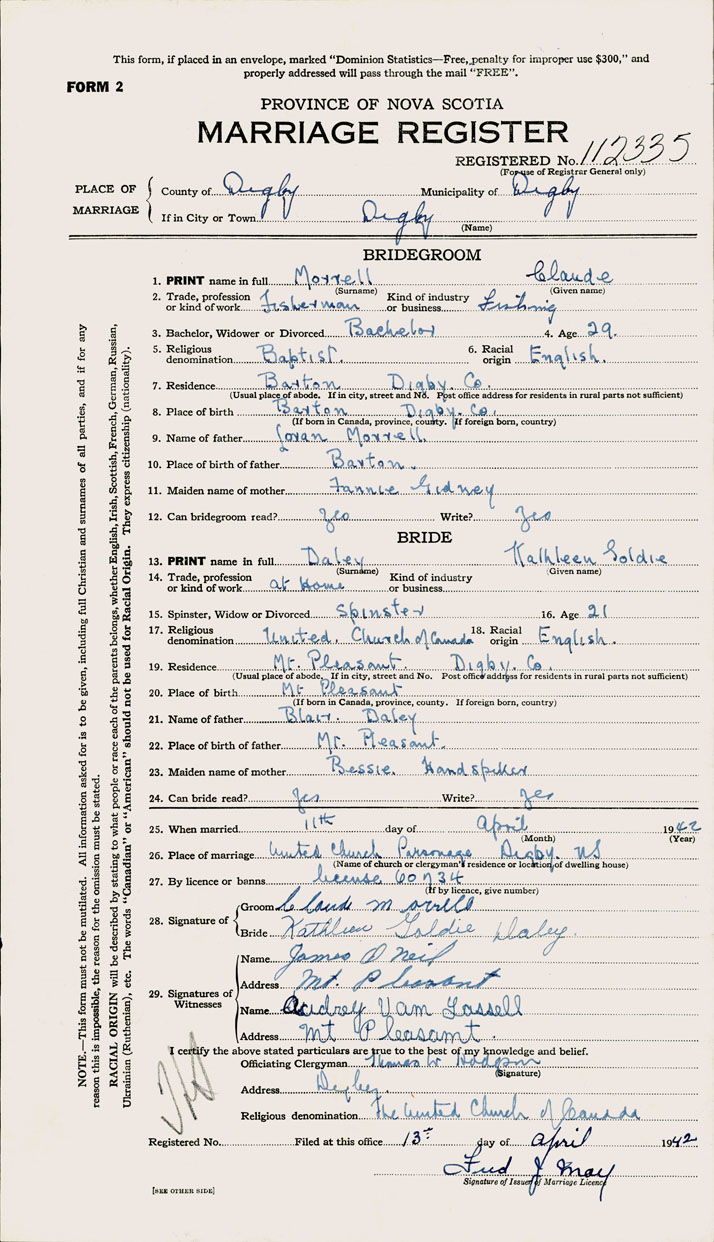 This form, if placed in an envelope, marked "Dominion Statistics—Free, penalty for improper use $300," and
properly addressed will pass through the mail "FREE".
FORM 2
PROVINCE OF NOVA SCOTIA
MARRIAGE REGISTER
REGISTERED No. 112335
(For use of Registrar General only)
PLACE OF MARRIAGE
County of Digby Municipality of Digby
If in City or Town Digby
(Name)
BRIDEGROOM
1. PRINT name in full Morrell Claude
(Surname) (Given name)
2. Trade, profession or kind of work Fisherman Kind of industry or business Fishing
3. Bachelor, Widower or Divorced Bachelor 4. Age 29.
5. Religious denomination Baptist. 6. Racial origin English.
7. Residence Barton Digby Co.
(Usual place of abode. If in city, street and No. Post office address for residents in rural parts not sufficient)
8. Place of birth Barton Digby. Co.
(If born in Canada, province, county. If foreign born, country)
9. Name of father Loran Morrell.
10. Place of birth of father Barton.
11. Maiden name of mother Fannie Gidney
12. Can bridegroom read? yes Write? yes
BRIDE
13. PRINT name in full Daley Kathleen Goldie
(Surname) (Given name)
14. Trade, profession or kind of work at Home Kind of industry or business
15. Spinster, Widow or Divorced Spinster 16. Age 21
17. Religious denomination United. Church of Canada 18. Racial origin English.
19. Residence Mt. Pleasant. Digby. Co.
(Usual place of abode. If in city, street and No. Post office address for residents in rural parts not sufficient)
20. Place of birth Mt Pleasant
(If born in Canada, province, county. If foreign born, country)
21. Name of father Blair. Daley
22. Place of birth of father Mt. Pleasant.
23. Maiden name of mother Bessie. Handspiker
24. Can bride read? yes Write? yes
25. When married 11th day of April 1942
(Month) (Year)
26. Place of marriage United Church Parsonage Digby. NS
(Name of church or clergyman's residence or location of dwelling house)
27. By licence or banns license 60734
(If by licence, give number)
28. Signature of
Groom Claud Morrell
Bride Kathleen Goldie Daley.
29. Signatures of Witnesses
Name James O Neil
Address Mt. Pleasant
Name Audrey Vam Tassell
Address Mt Pleasamt.
I certify the above stated particulars are true to the best of my knowledge and belief.
Officiating Clergyman Thomas W Hodgson
(Signature)
Address Digby.
Religious denomination The United Church of Canada
Registered No. Filed at this office 13th day of April 1942
Fred J May
Signature of Issuer of Marriage Licence
[SEE OTHER SIDE]
NOTE.—This form must not be mutilated. All information asked for is to be given, including full Christian and surnames of all parties, and if for any
reason this is impossible, the reason for the omission must be stated.
RACIAL ORIGIN will be described by stating to what people or race each of the parents belongs, whether English, Irish, Scottish, French, German, Russian,
Ukrainian (Ruthenian), etc. The words "Canadian" or "American" should not be used for Racial Origin. They express citizenship (nationality).